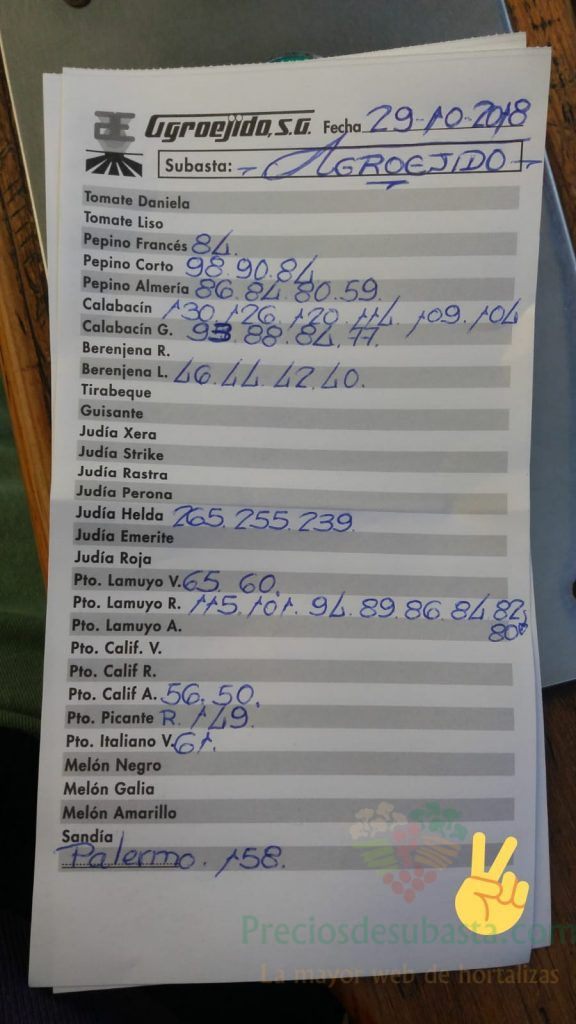 Agroejido, S.G. Fecha 29-10-2018
Subasta: - AGROEJIDO -
Tomate Daniela
Tomate Liso
Pepino Francés 84.
Pepino Corto 98.90.84
Pepino Almería 86.84.80.59.
Calabacín 130.126.120.114.109.104
Calabacín G. 93.88.84.77.
Berenjena R.
Berenjena L. 46.44.42.40.
Tirabeque
Guisante
Judía Xera
Judía Strike
Judía Rastra
Judía Perona
Judía Helda 265.255.239.
Judía Emerite
Judía Roja
Pto. Lamuyo V. 65.60.
Pto. Lamuyo R. 115.101.94.89.86.84.82.
Pto. Lamuyo A. 80
Pto. Calif. V.
Pto. Calif R.
Pto. Calif A. 56.50.
Pto. Picante R. 149.
Pto. Italiano V. 61.
Melón Negro
Melón Galia
Melón Amarillo
Sandía
Palermo. 158.
Preciosdesubasta.com
La mayor web de hortalizas